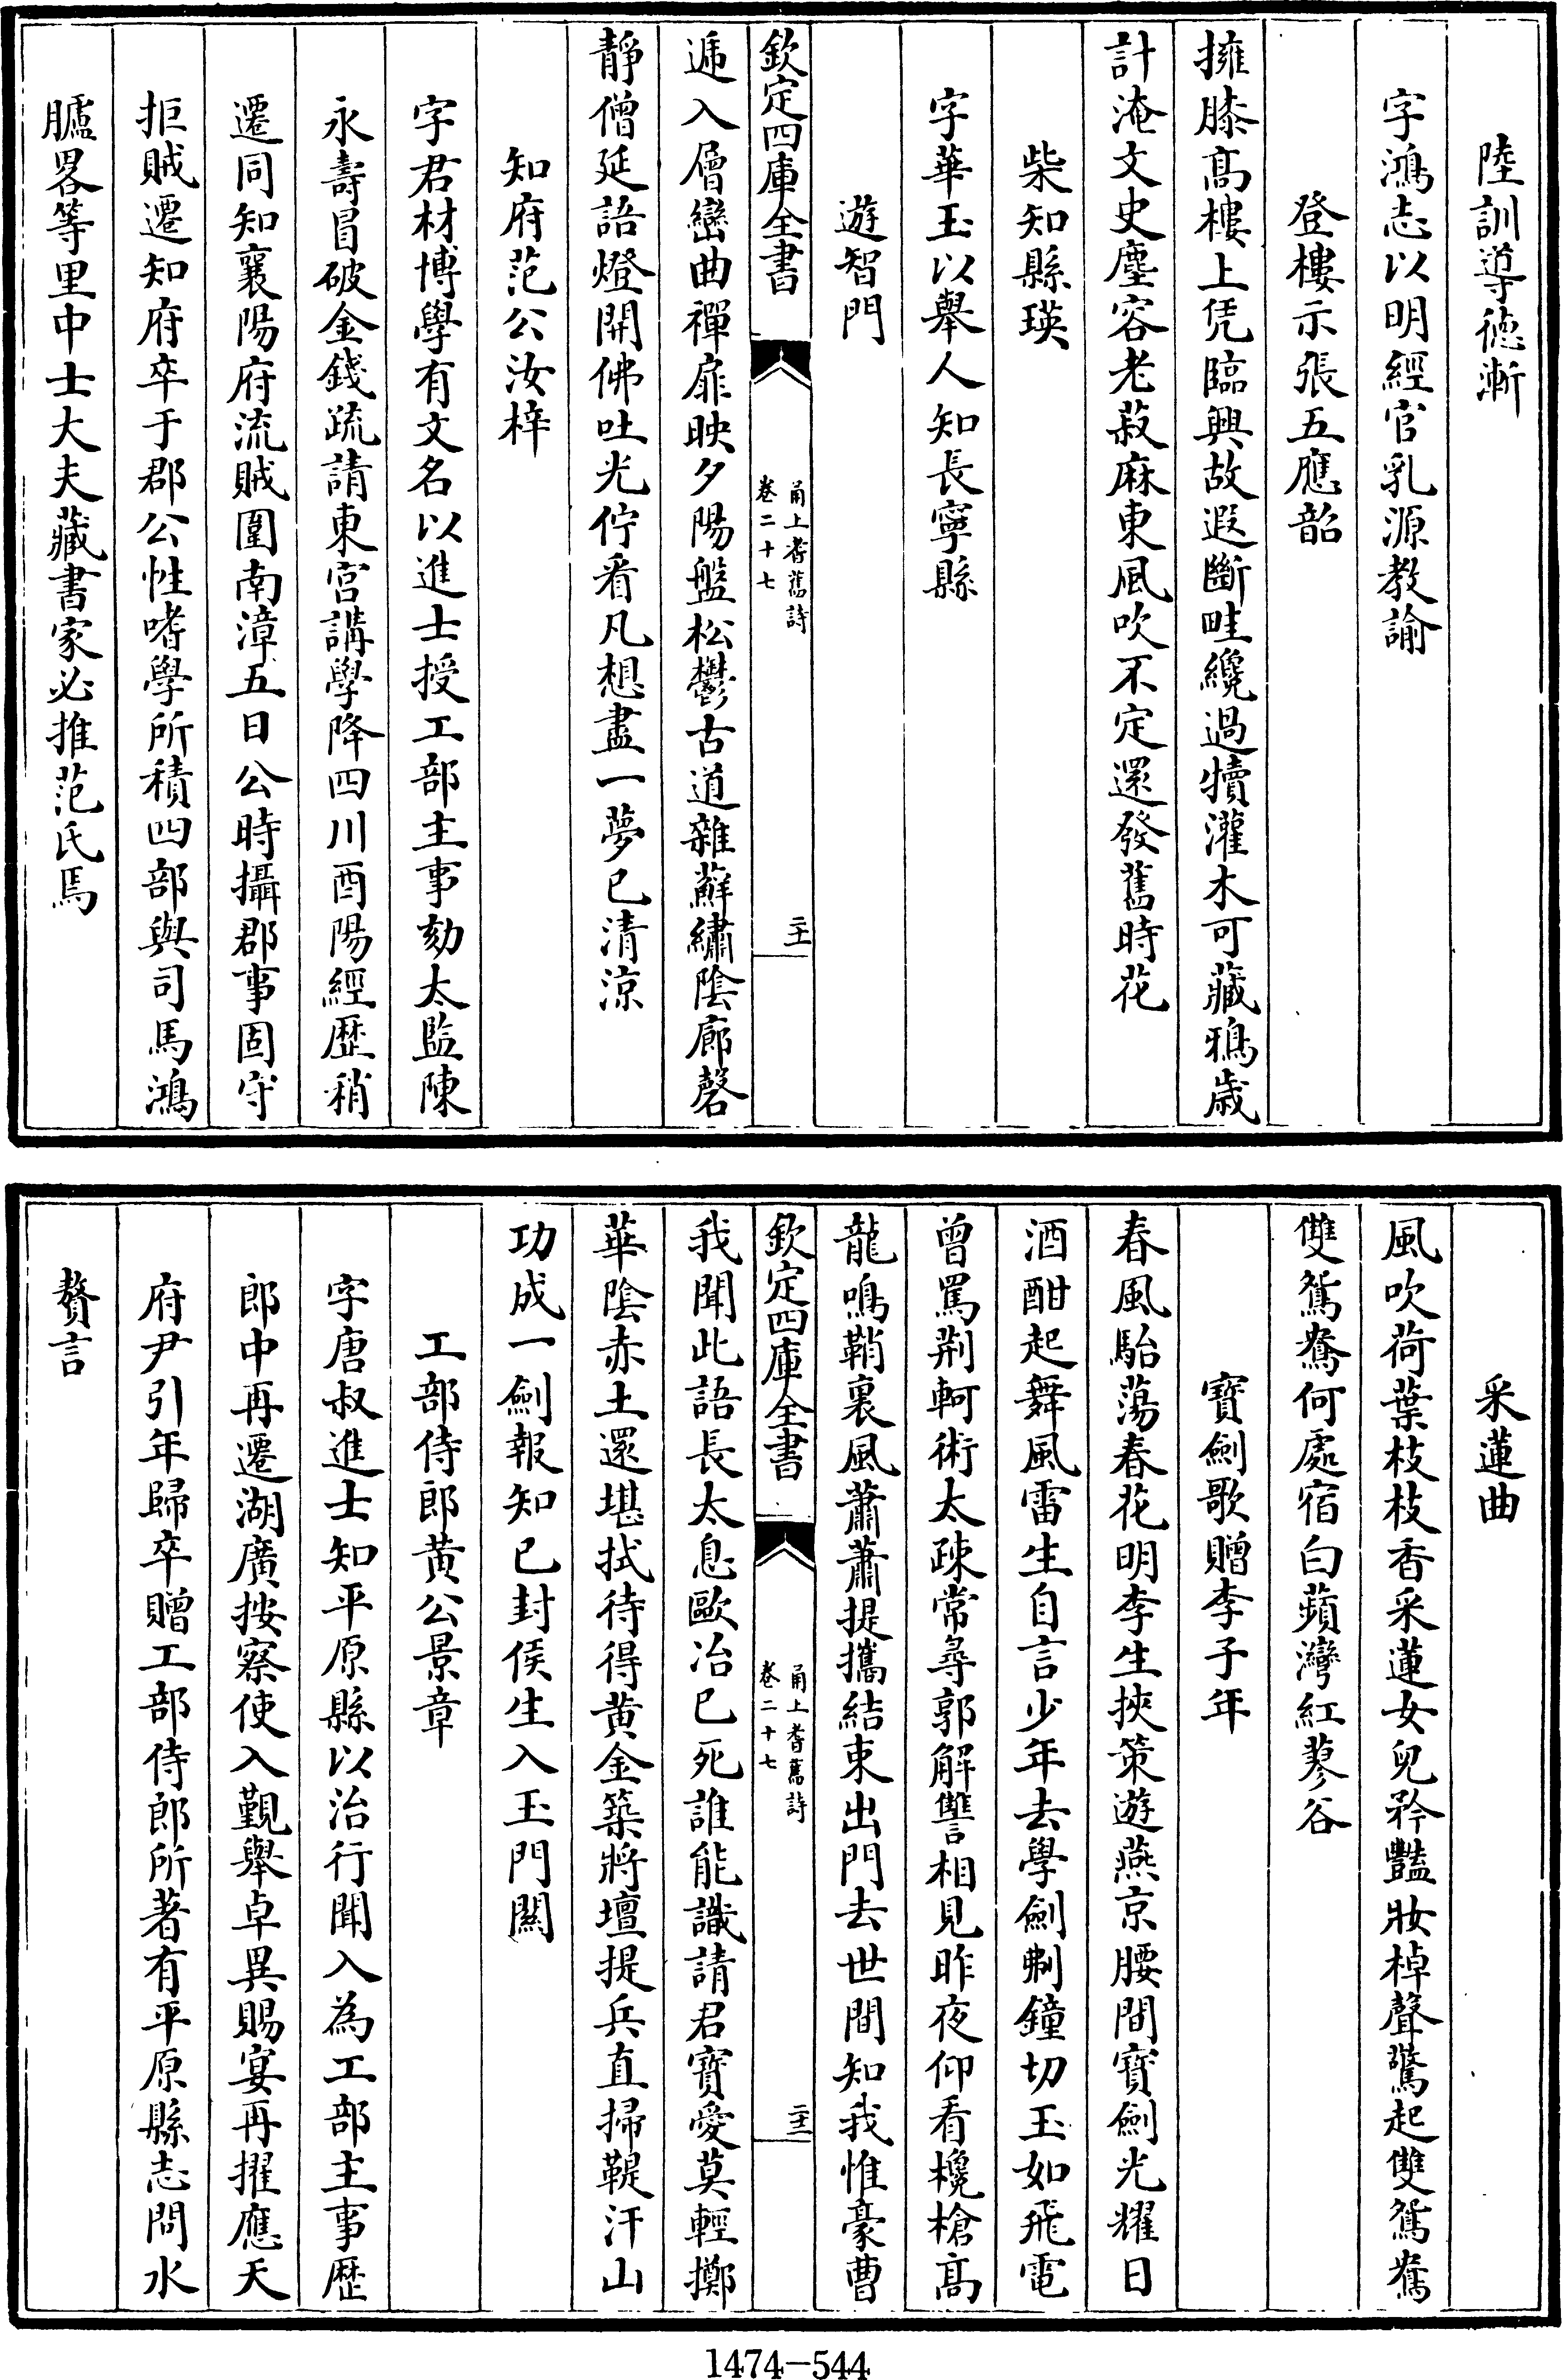 陸訓導德漸
字鴻志以明經官乳源教諭
登樓示張五應韶
擁膝髙樓上凭臨興故遐斷畦纔過犢灌木可藏鴉歳
計淹文史塵容老菽麻東風吹不定還發舊時花
柴知縣瑛
字華玉以舉人知長寧縣
遊智門
欽定四庫全書
甬上耆舊詩
卷二十七
二十一
遞入層巒曲禪扉映夕陽盤松鬱古道雜蘚繡陰廊磬
靜僧延語燈開佛吐光佇看凡想盡一夢已清涼
知府范公汝梓
字君材博學有文名以進士授工部主事劾太監陳
永壽冒破金錢疏請東宮講學降四川酉陽經歴稍
遷同知襄陽府流賊圍南漳五日公時攝郡事固守
拒賊遷知府卒于郡公性嗜學所積四部與司馬鴻
臚畧等里中士大夫藏書家必推范氏焉
采蓮曲
風吹荷葉枝枝香采蓮女兒矜豔妝棹聲驚起雙鴛鴦
雙鴛鴦何處宿白蘋灣紅蓼谷
寶劍歌贈李子年
春風駘蕩春花明李生挾策遊燕京腰間寶劍光耀日
酒酣起舞風雷生自言少年去學劍剸鐘切玉如飛電
曾罵荆軻術太疎常尋郭解讐相見昨夜仰看欃槍髙
龍鳴鞘裏風蕭蕭提攜結束出門去世間知我惟豪曹
欽定四庫全書
甬上耆舊詩
卷二十七
二十二
我聞此語長太息歐冶已死誰能識請君寶愛莫輕擲
華陰赤土還堪拭待得黄金築將壇提兵直掃鞮汗山
功成一劍報知已封侯生入玉門闗
工部侍郎黄公景章
字唐叔進士知平原縣以治行聞入為工部主事歴
郎中再遷湖廣按察使入覲舉卓異賜宴再擢應天
府尹引年歸卒贈工部侍郎所著有平原縣志問水
贅言
1474-544